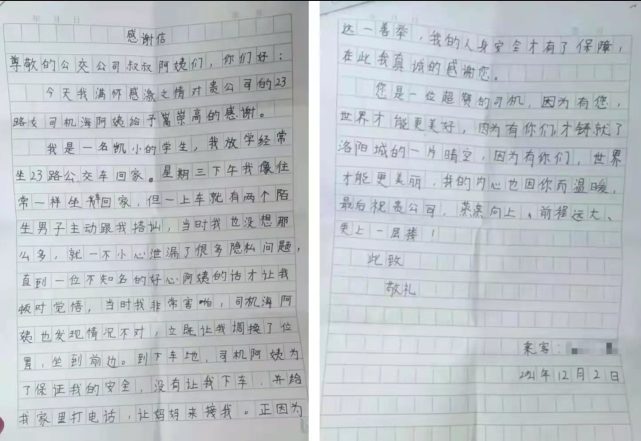 感谢信
尊敬的公交公司叔叔阿姨们,你们好:
今天我满怀感激之情对贵公司的23
路女司机海阿姨给予崇高的感谢。
我是一名凯小的学生,我放学经常
坐23路公交车回家。星期三下午我像往
常一样坐车回家,但一上车就有两个陌
生男子主动跟我搭讪,当时我也没想那
么多,就一不小心泄漏了很多隐私问题,
直到一位不知名的好心阿姨的话才让我
顿时觉悟,当时我非常害怕,司机海阿
姨也发现情况不对,立既让我调换了位
置,坐到前边。到下车地,司机阿姨为
了保证我的安全,没有让我下车,并给
我家里打电话,让妈妈来接我。正因为
这一善举,我的人身安全才有了保障,
在此我真诚的感谢您。
您是一位超赞的司机,因为有您,
世界才能更美好,因为有你们才铸就了
洛阳城的一片晴空,因为有你们,世界
才能更美丽,我的内心也因你而温暖,
最后祝贵公司,蒸蒸向上、前程远大、
更上一层楼!
此致
敬礼
乘客:
2021年12月2日